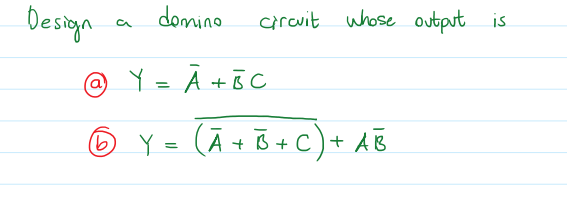 Design a domino circuit whose output is
(a) Y = A̅ + B̅C
(b) Y = \overline{(A̅ + B̅ + C)} + AB̅